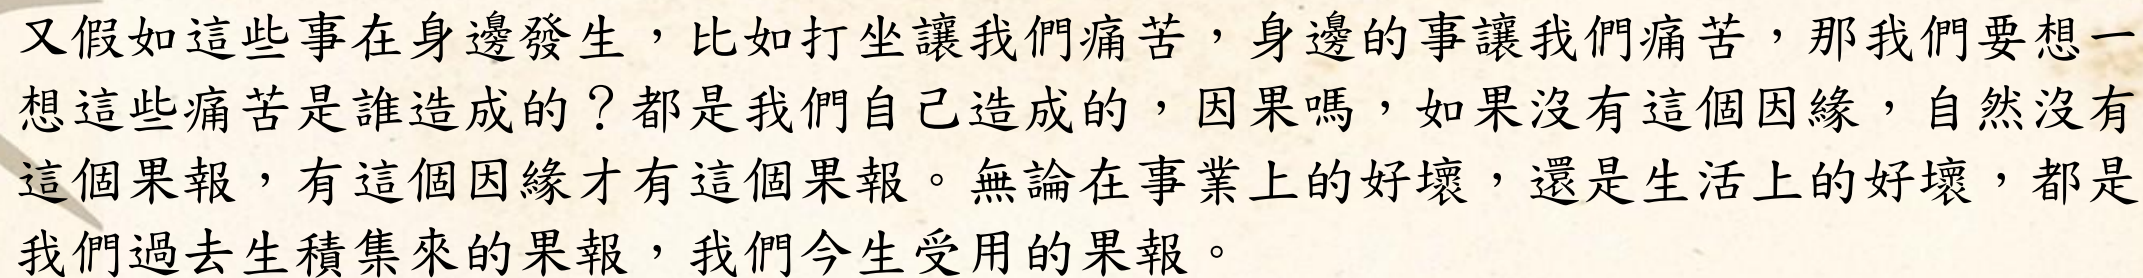 又假如這些事在身邊發生，比如打坐讓我們痛苦，身邊的事讓我們痛苦，那我們要想一
想這些痛苦是誰造成的？都是我們自己造成的，因果嗎，如果沒有這個因緣，自然沒有
這個果報，有這個因緣才有這個果報。無論在事業上的好壞，還是生活上的好壞，都是
我們過去生積集來的果報，我們今生受用的果報。